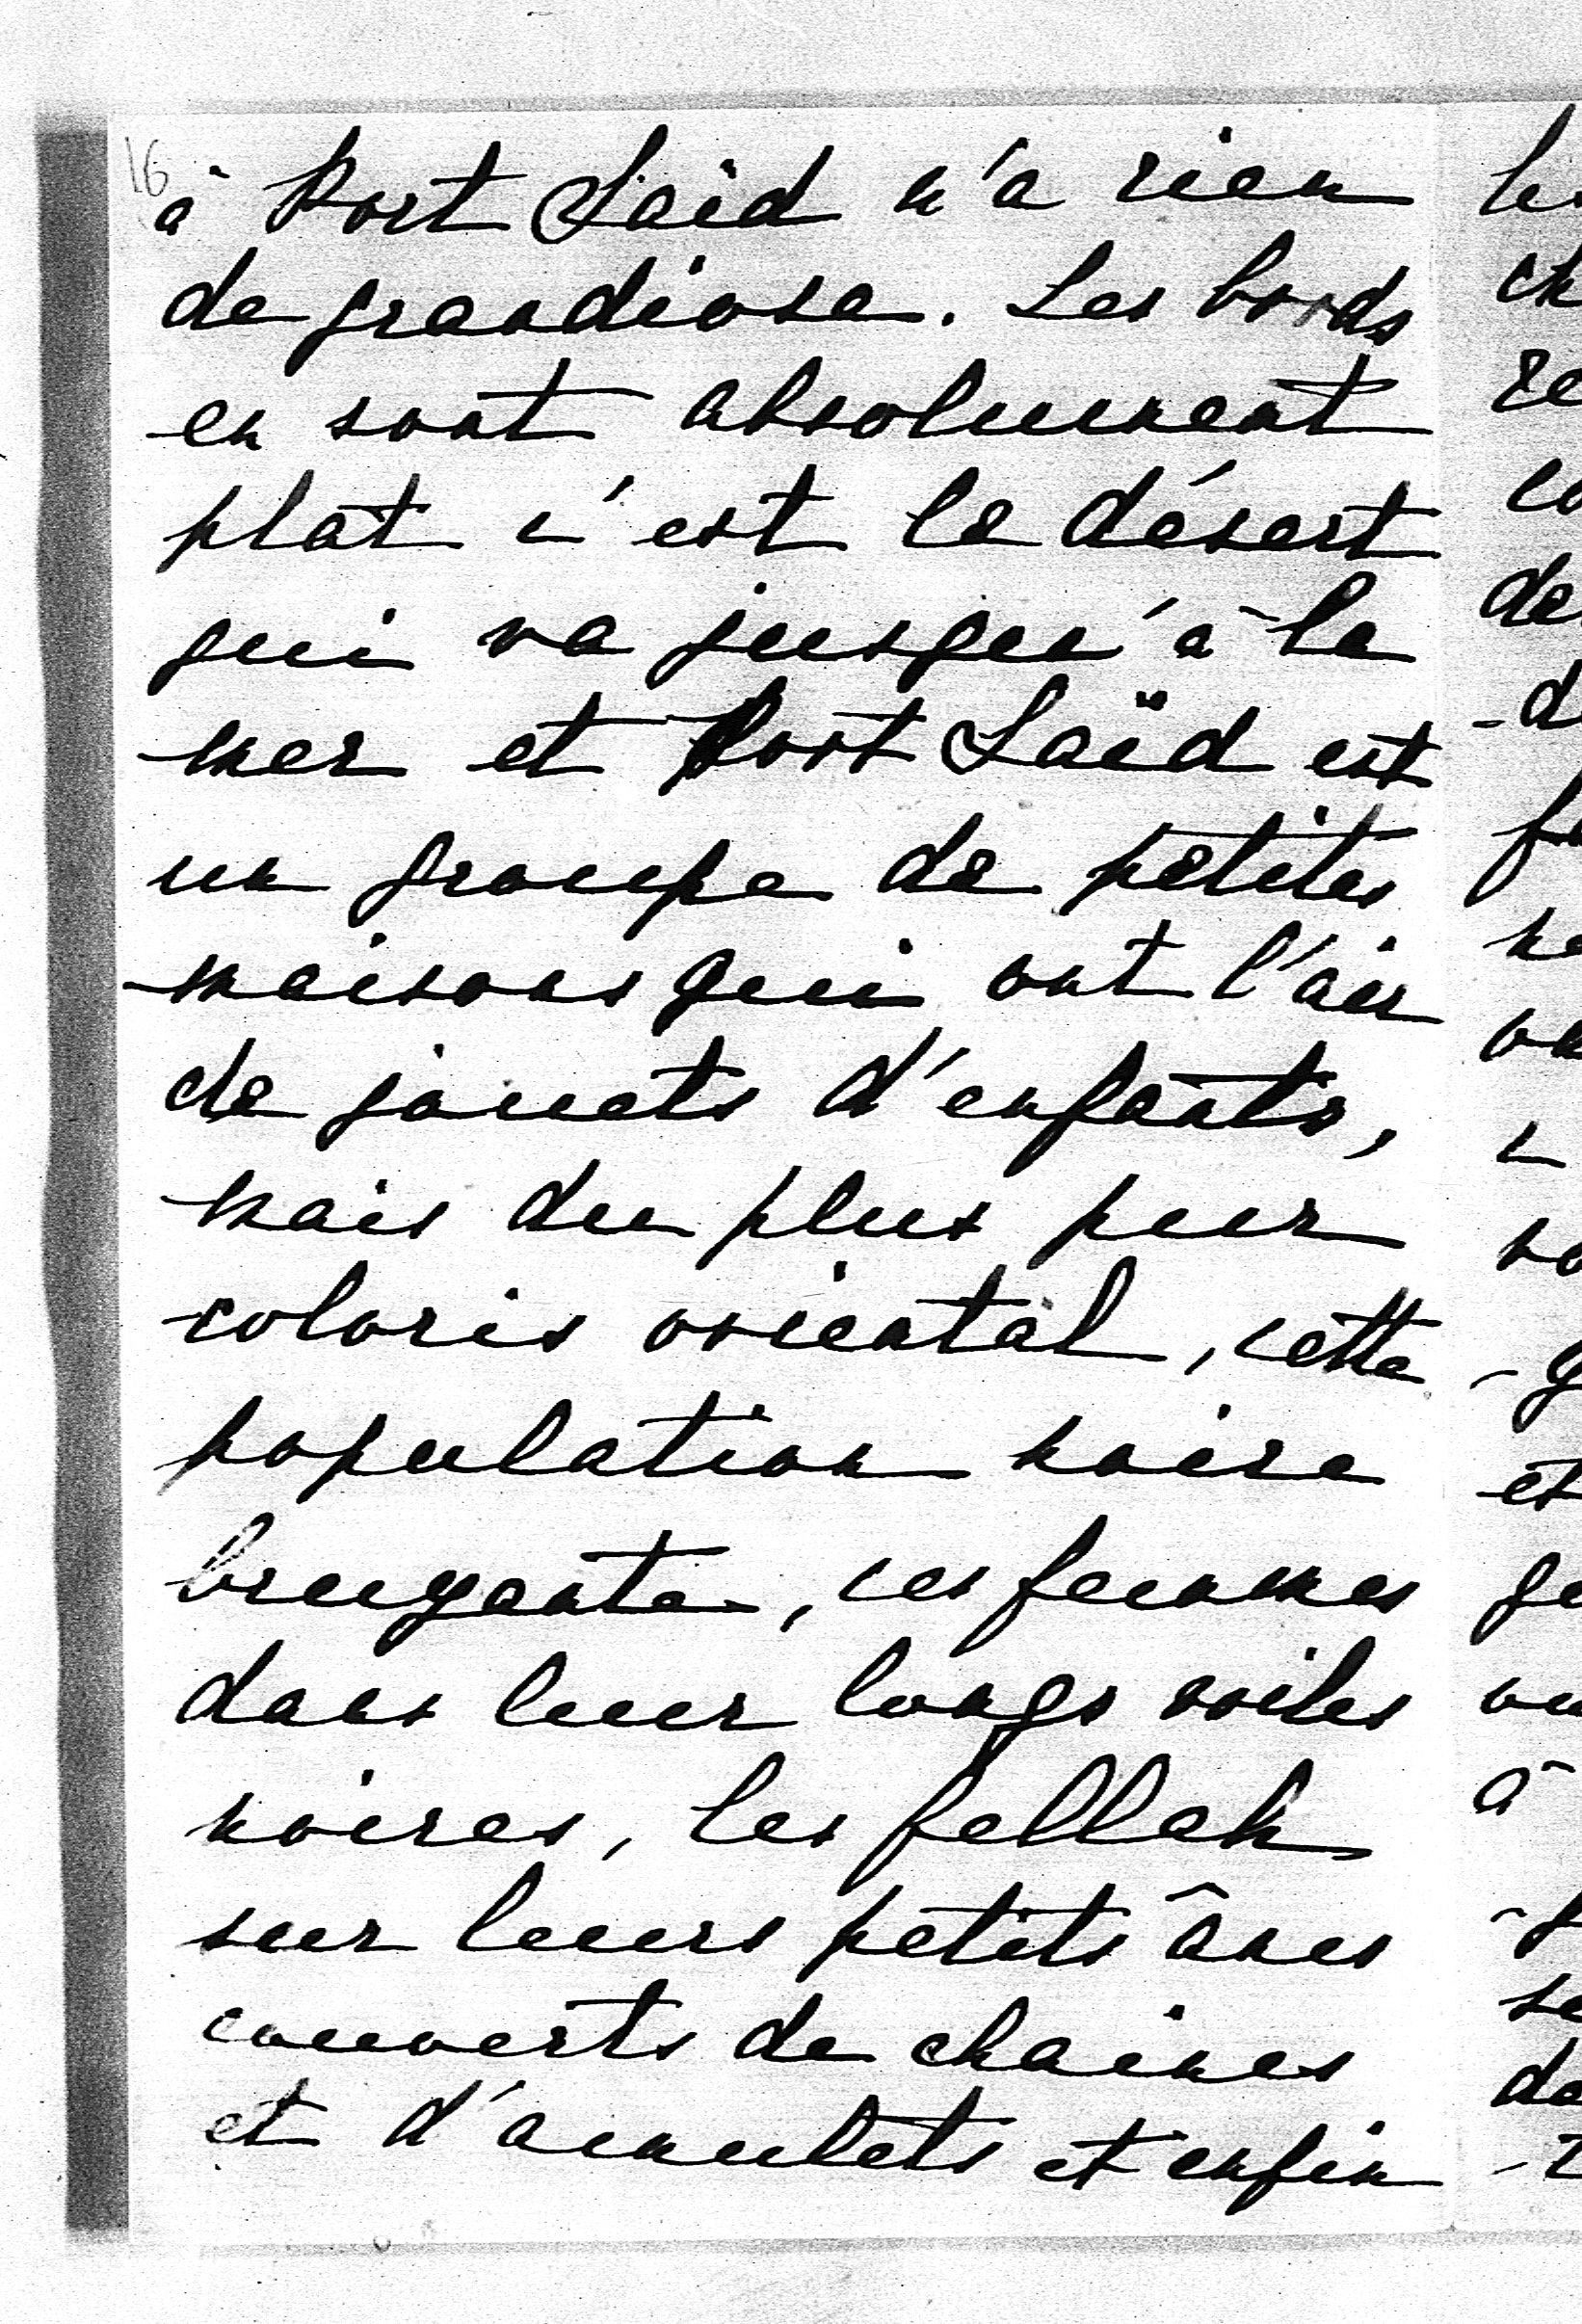 16
à Port Saïd n'a rien
de grandiose. Les bords
en sont absolument
plat c'est le désert
qui va jusqu'à la
mer et Port Saïd est
un groupe de petites
maisons qui ont l'air
de jouets d'enfants,
mais du plus pur
coloris oriental, cette
population noire
bruyante, ces femmes
dans leur longs voiles
noires, les fellah
sur leurs petits ânes
couverts de chaines
et d'amulets et enfin